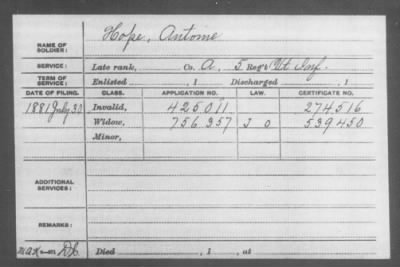 NAME OF SOLDIER: Hope, Antoine
SERVICE: Late rank, Co. A, 5 Reg't Vt Inf.
TERM OF SERVICE: Enlisted , 1 Discharged , 1
DATE OF FILING. CLASS. APPLICATION NO. LAW. CERTIFICATE NO.
1881 July 30 Invalid, 425011 274516
Widow, 756357 J O 539450
Minor,
ADDITIONAL SERVICES:
REMARKS:
Died , 1 , at